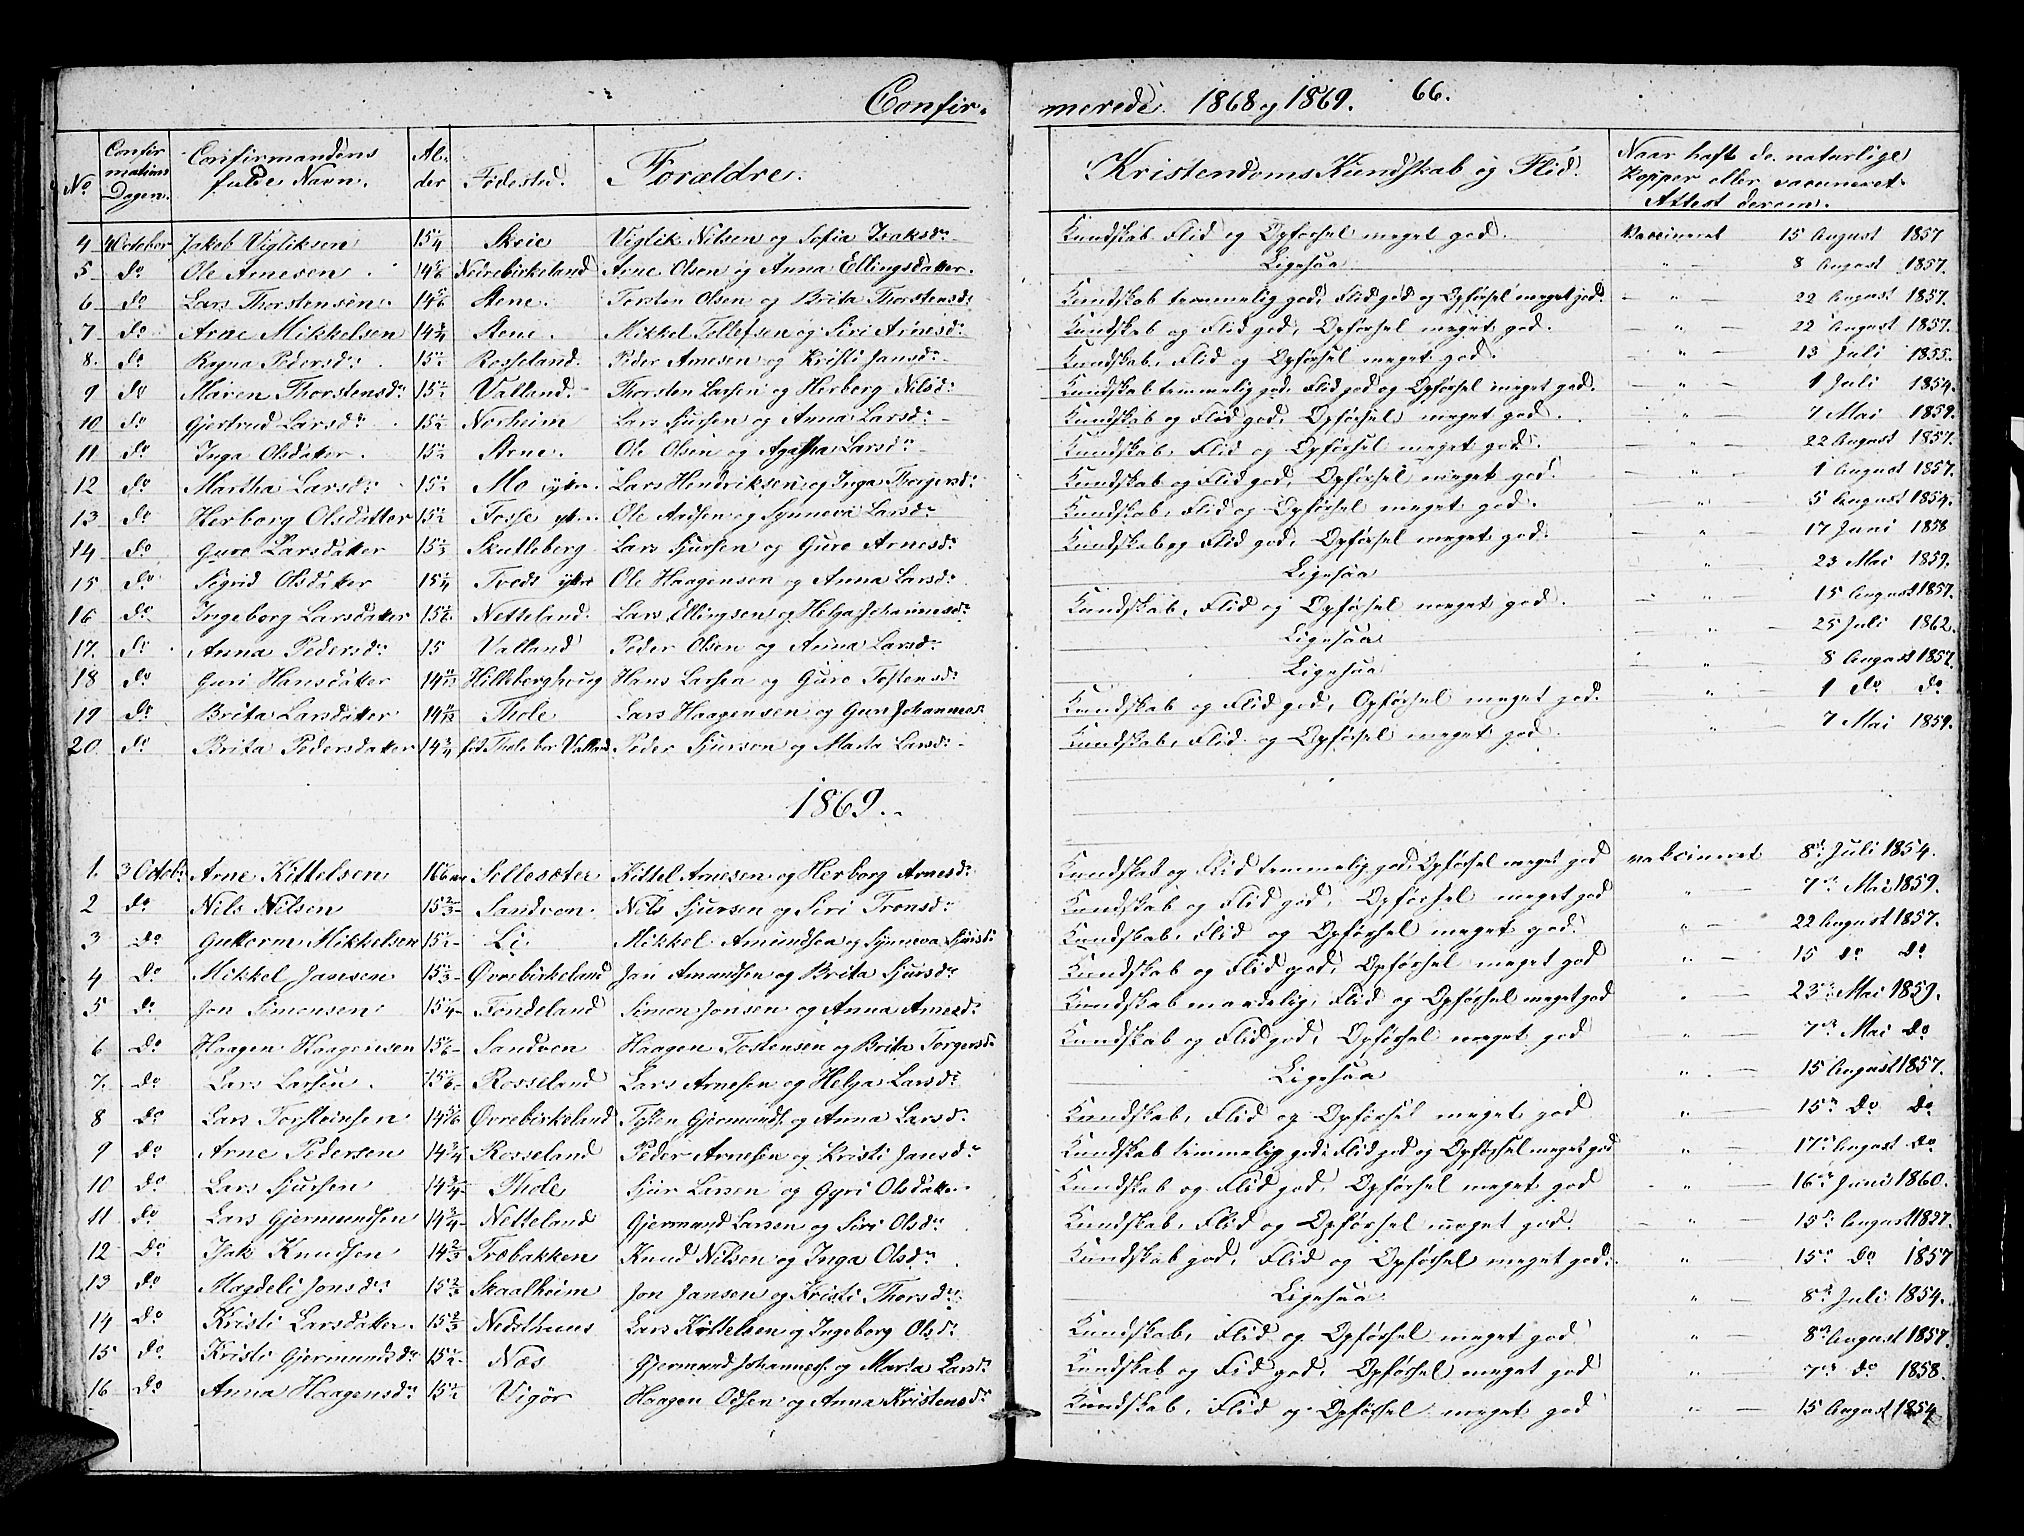 Confirmerede 1868 og 1869. 66.
No Confirmations Dagen. Confirmandens fulde Navn. Alder Fødested. Forældre. Kristendoms Kundskab og Flid. Naar haft de naturlige Kopper eller vaccineret. Attest derom.
4 4 October Jakob Vigliksen 15 1/4 Skeie Viglik Nilsen og Sofia Isaksdr Kundskab Flid og Opførsel meget god. Vaccineret 15 August 1857
5 do Ole Arnesen 14 5/6 Nedrebirkeland Arne Olsen og Anna Ellingsdatter. Ligesaa " 8 August 1857.
6 do Lars Thorstensen 14 5/6 Aene. Torsten Olsen og Brita Thorstensdr Kundskab temmelig god, Flid god og Opførsel meget god. " 22 August 1857.
7 do Arne Mikkelsen 14 3/4 Aene. Mikkel Tollefsen og Siri Arnesdr Kundskab og Flid god, Opførsel meget god. " 22 August 1857.
8. do Ragna Pedersdr 15 1/2 Rosseland. Peder Arnesen og Kristi Jansdr Kundskab, Flid og Opførsel meget god. " 13 Juli 1855.
9 do Maren Thorstensdr 15 1/2 Valland. Thorsten Larsen og Herborg Nilsdr Kundskab temmelig god, Flid god og Opførsel meget god. " 1 Juli 1854.
10 do Gjertrud Larsdr 15 1/2 Norheim Lars Sjursen og Anna Larsdr Kundskab og Flid god, Opførsel meget god. " 7 Mai 1859.
11 do Inga Olsdatter 15 1/2 Aene. Ole Olsen og Agatha Larsdr Kundskab, Flid og Opførsel meget god. " 22 August 1857.
12 do Martha Larsdr 15 1/2 Mo ytre. Lars Hendriksen og Inga Thorgersdr Kundskab og Flid god, Opførsel meget god. " 1 August 1857.
13 do Herborg Olsdatter 15 1/2 Fosse yt. Ole Aadsen og Synneva Larsdr Kundskab, Flid og Opførsel meget god. " 5 August 1854.
14 do Guro Larsdatter 15 1/3 Skutleberg Lars Sjursen og Guro Arnesdr Kundskab og Flid god, Opførsel meget god. " 17 Juni 1858
15 do Sigrid Olsdatter 15 1/4 Tvedt ytre Ole Haagensen og Anna Larsdr Ligesaa " 23 Mai 1859.
16 do Ingeborg Larsdatter 15 1/6 Netteland. Lars Ellingsen og Helga Johannesdr Kundskab, Flid og Opførsel meget god. " 15 August 1857.
17. do Anna Pedersdr 15 Valland Peder Olsen og Anna Larsdr Ligesaa " 25 Juli 1862.
18 do Guri Hansdatter 14 11/12 Hilleberghaug Hans Larsen og Guro Tostensdr Ligesaa " 8 August 1857
19 do Brita Larsdatter 14 11/12 Thole Lars Haagensen og Guri Johannesdr Kundskab og Flid god, Opførsel meget god. " 1 do do
20 do Brita Pedersdatter 14 3/4 fød. Thole bor Valland. Peder Sjurson og Marta Larsdr Kundskab, Flid og Opførsel meget god. " 7 Mai 1859.
1869.
1. 3 Octobr Arne Kittelsen 16 Sellesæter Kittel Arnesen og Herborg Arnesdr Kundskab og Flid temmelig god, Opførsel meget god vakcineret 8de Juli 1854.
2 do Nils Nilsen 15 2/3 Sandven. Nils Sjursen og Siri Tronsdr Kundskab og Flid god, Opførsel meget god " 7de Mai 1859.
3 Do Guttorm Mikkelsen 15 1/2 Li. Mikkel Amundsen og Synneva Kundskab, Flid og Opførsel meget god. " 22 August 1857.
4 Do Mikkel Jansen 15 1/3 Øvrebirkeland Jan Amundsen og Brita Sjursdr Kundskab og Flid god, Opførsel meget god " 15 do do
5 do Jon Simonsen 15 1/4 Tondeland Simon Jonsen og Anna Arnesdr Kundskab maadelig, Flid og Opførsel meget god " 23de Mai 1859.
6 Do Haagen Haagensen 15 1/6 Sandven Haagen Tostensen og Brita Torgersdr Kundskab og Flid god, Opførsel meget god " 7de Mai do
7. Do Lars Larsen 15 1/6 Rosseland Lars Arnesen og Helga Larsdr Ligesaa " 15 August 1857.
8 Do Lars Torsteinsen 14 5/6 Øvrebirkeland Tosten Gjermunds. og Anna Larsdr Kundskab, Flid og Opførsel meget god " 15de do do
9 do Arne Pedersen 14 3/4 Rosseland Peder Arnesen og Kristi Jansdr Kundskab temmelig god, Flid god og Opførsel meget god " 17de August do
10 do Lars Sjursen 14 3/4 Thole Sjur Larsen og Gyri Olsdatter Kundskab og Flid god, Opførsel meget god " 16de Juni 1860.
11 do Lars Gjermundsen 14 3/4 Netteland Gjermund Larsen og Siri Olsdr Kundskab, Flid og Opførsel meget god. " 15de August 1857.
12 Do Isak Knudsen 14 2/3 Træbakken Knud Nilsen og Inga Olsdr Kundskab god, Flid og Opførsel meget god. " 15de do 1857
13 do Magdeli Jonsdr 15 2/3 Skaalheim Jon Jansen og Kristi Thorsdr Ligesaa " 8de Juli 1854.
14 Do Kristi Larsdatter 15 2/3 Nedsthuus Lars Kittelsen og Ingeborg Olsdr Kundskab, Flid og Opførsel meget god " 8de August 1857.
15 Do Kristi Gjermundsdr 15 1/2 Næs Gjermund Johanness. og Marta Larsdr Kundskab og Flid god, Opførsel meget god " 7de do 1858.
16 Do Anna Haagensdr 15 1/2 Vigør Haagen Odsen og Anna Kristensdr Kundskab, Flid og Opførsel meget god " 15 August 1854